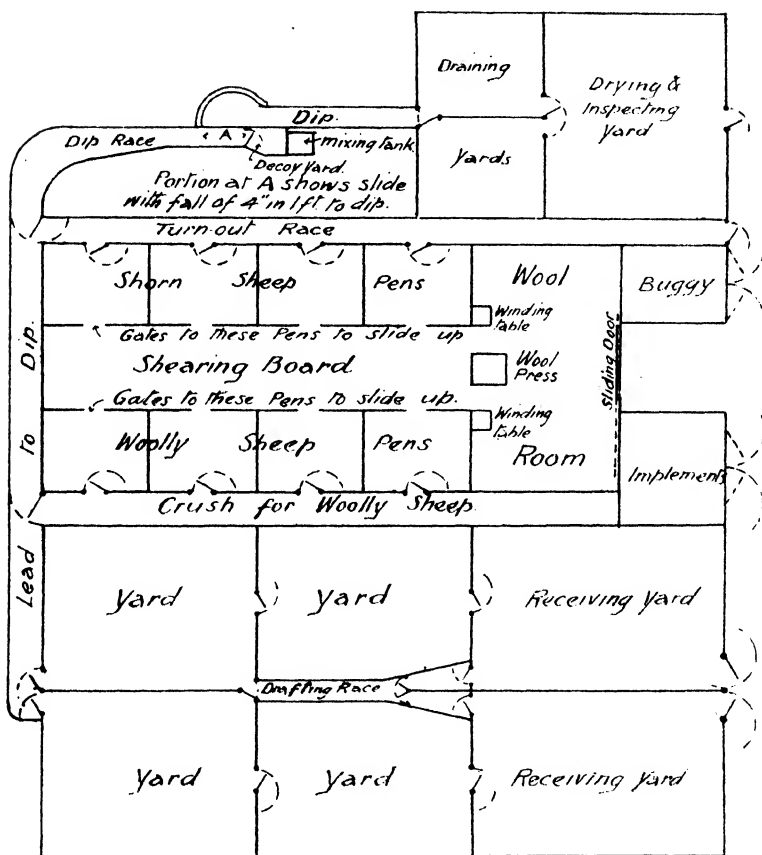 Draining
Yards
Drying &
Inspecting
Yard
Dip.
Dip Race
A
mixing tank
Decoy Yard.
Portion at A shows slide
with fall of 4" in 1 ft. to dip.
Turn-out Race
Shorn Sheep Pens
Wool
Room
Buggy
Winding
table
Gates to these Pens to slide up
Shearing Board
Wool
Press
Sliding Door
Gates to these Pens to slide up.
Winding
table
Woolly Sheep Pens
Implements
Crush for Woolly Sheep
Lead to Dip.
Yard
Yard
Receiving Yard
Drafting Race
Yard
Yard
Receiving Yard